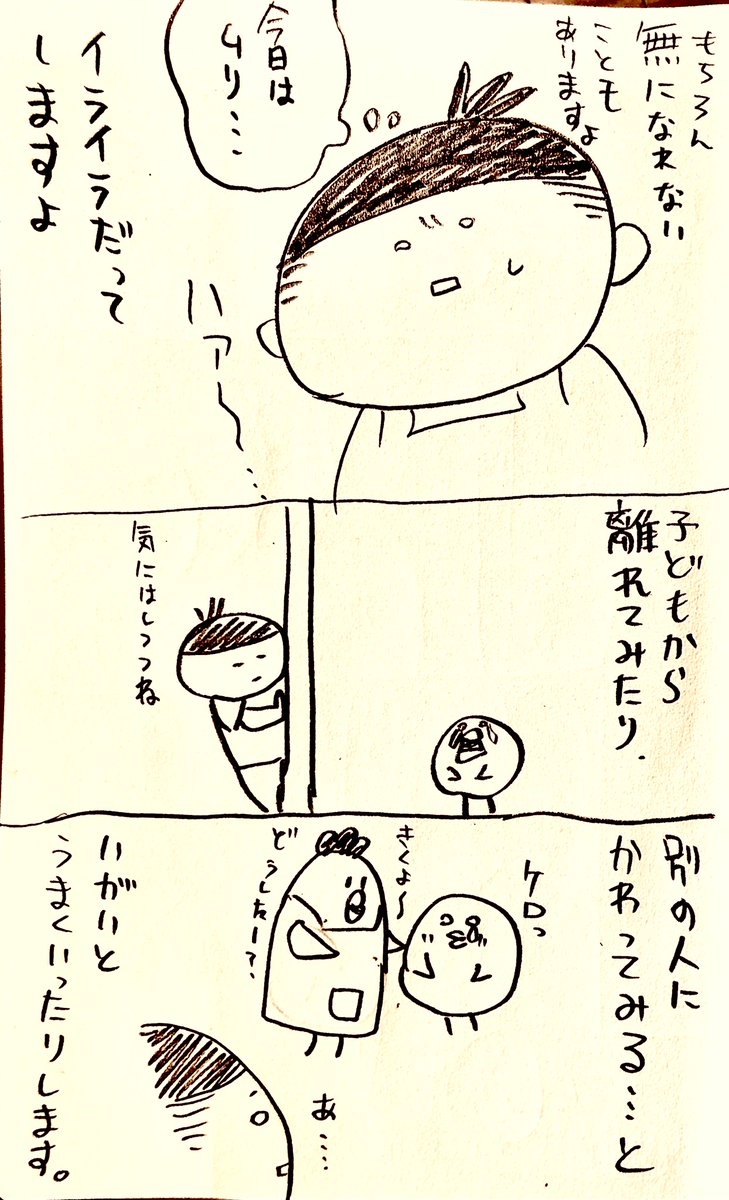 もちろん
無になれない
ことも
ありますよ
今日は
ムリ…
イライラだって
しますよ
ハァ〜…
子どもから
離れてみたり.
気にはしつつね
別の人に
かわってみる…と
ケロっ
きくよ〜
どうしたー？
あ…
いがいと
うまくいったりします。